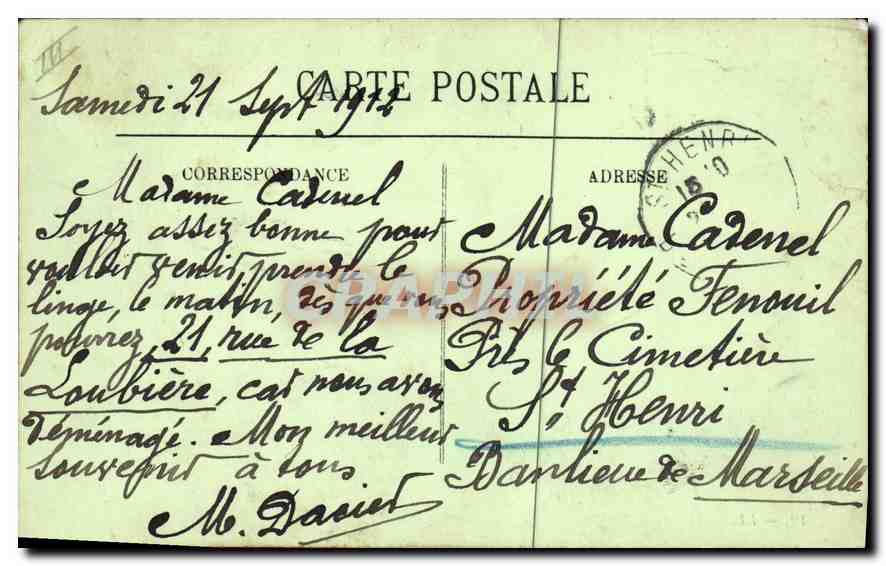 III
CARTE POSTALE
Samedi 21 Sept 1912
CORRESPONDANCE
Madame Cadenel
Soyez assez bonne pour
vouloir venir prendre le
linge, le matin, dès que vous
pourrez, 21, rue de la
Loubière, car nous avons
déménagé. Mon meilleur
souvenir à tous
M. Dacier
ADRESSE
ST HENRI
Madame Cadenel
Propriété Fenouil
Près le Cimetière
St Henri
Banlieue de Marseille